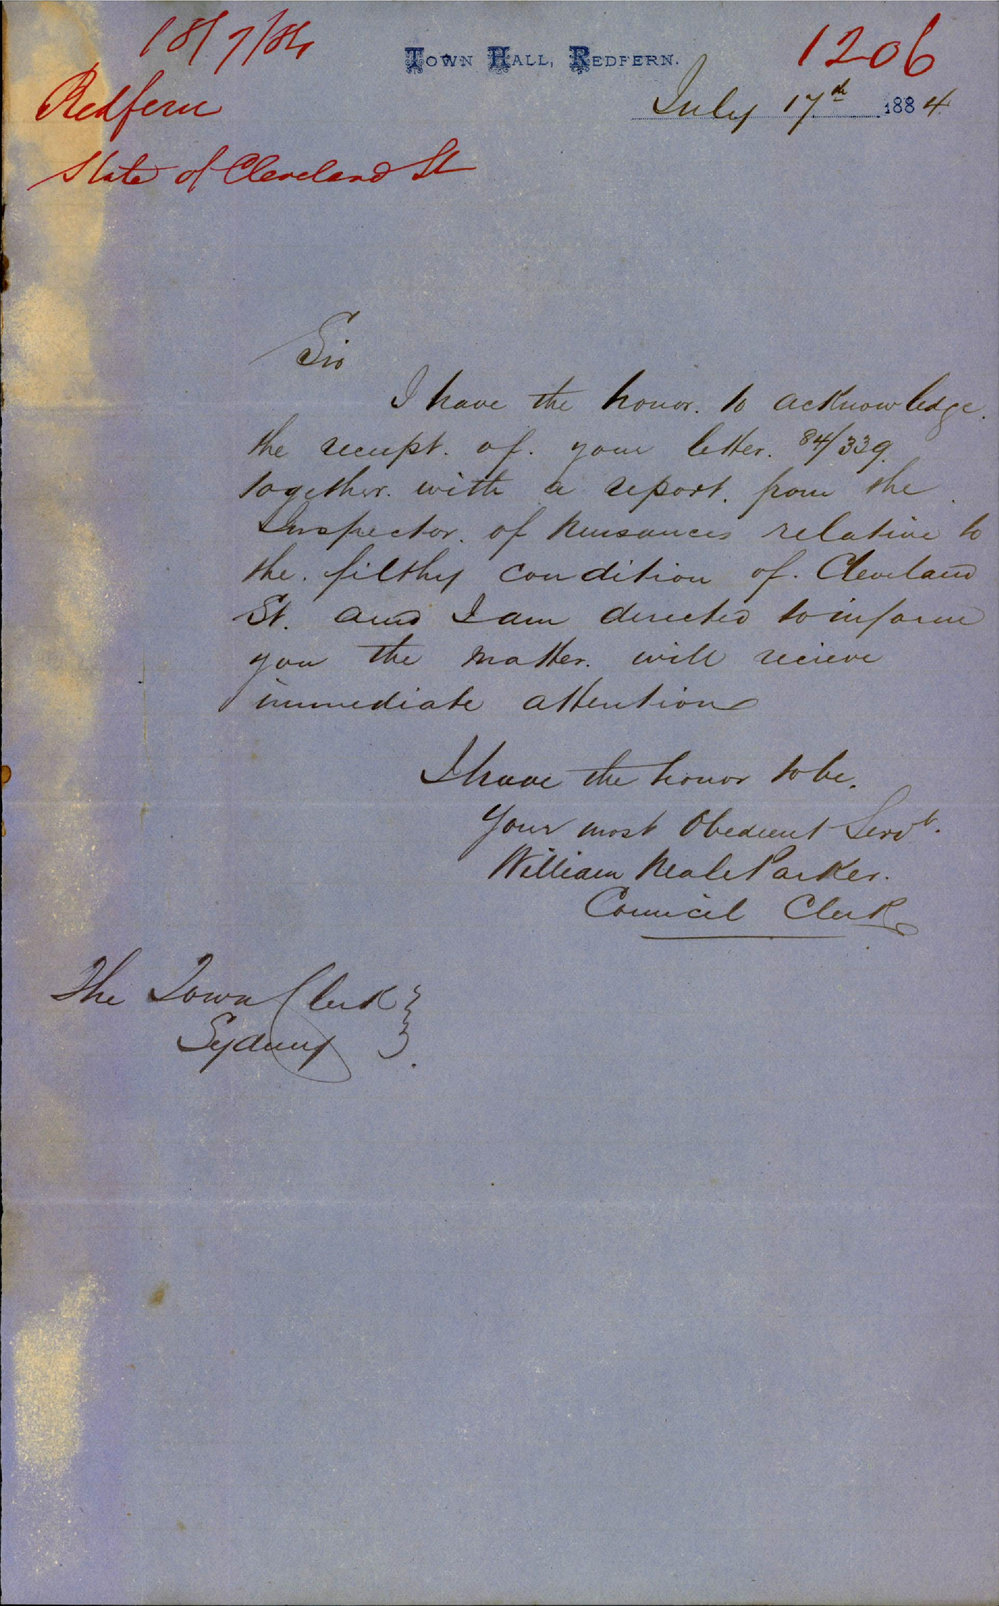 18/7/84
Redfern
State of Cleveland St
1206
TOWN HALL, REDFERN.
July 17th 1884
Sir
I have the honor. to acknowledge.
the receipt. of. your letter. 84/339.
together. with a report. from the.
Inspector. of Nuisances relative to
the. filthy condition of. Cleveland
St. and I am directed to inform
you the matter. will recieve
immediate attention
I have the honor to be.
Your most Obedient Servt.
William Neale Parker.
Council Clerk
The Town Clerk
Sydney